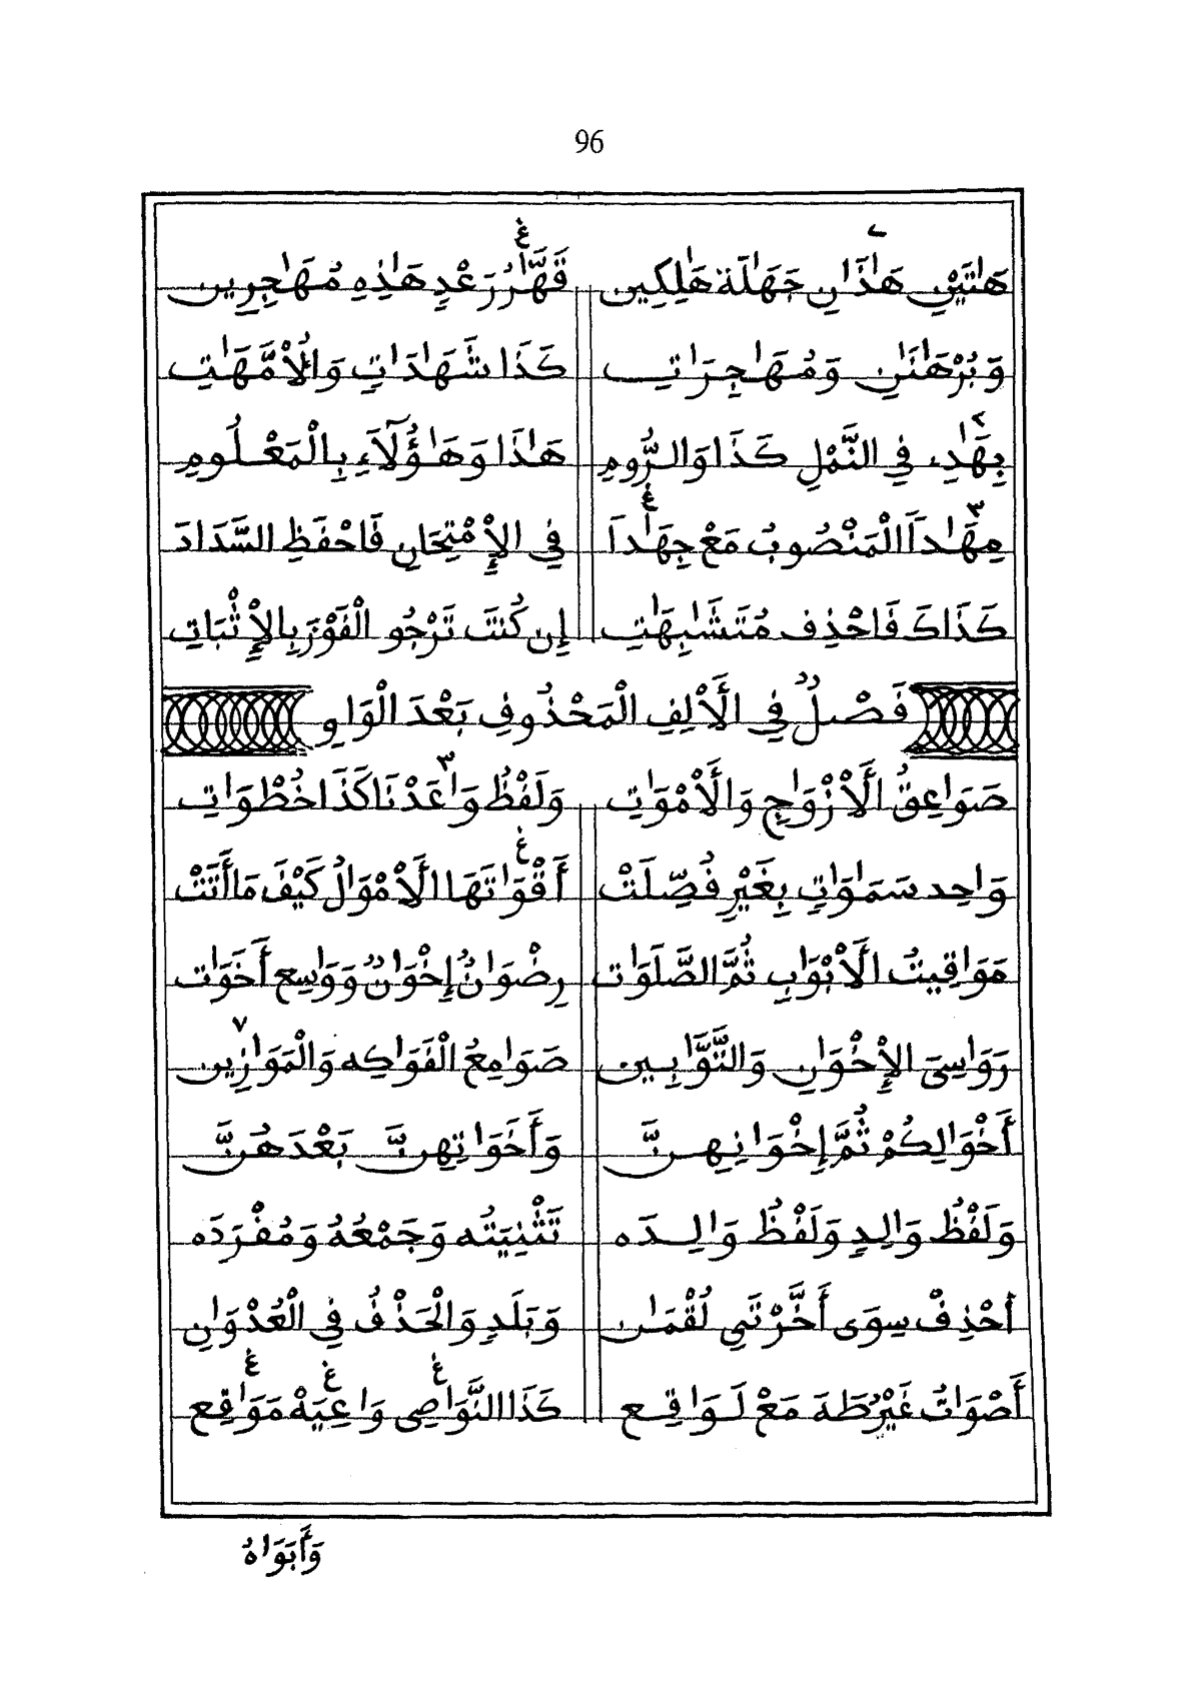 96
هَٰتَيْنِ هَٰذَانِ جَهَٰلَة هَٰلِكِين قَهَّٰرُ رَعْدٍ هَٰذِهِ مُهَٰجِرِين
وَبُرْهَٰنَٰنِ وَمُهَٰجِرَاتِ كَذَا شَهَٰدَاتٍ وَالُامَّهَٰتِ
بِهَٰدِے فِي النَّمْلِ كَذَا وَالرُّومِ هَٰذَا وَهَٰؤُلَآءِ بِالْمَعْلُومِ
مِهَٰداَ الْمَنْصُوبُ مَعْ جِهَٰداَ فِي الِامْتِحَانِ فَاحْفَظِ السَّدَادَ
كَذَاكَ فَاحْذِف مُتَشَٰبِهَٰتِ إِن كُنتَ تَرْجُو الْفَوْزَ بِالِاثْبَاتِ
فَصْلٌ فِي الَالِفِ الْمَحْذُوفِ بَعْدَ الْوَاوِ
صَوَاعِقُ الَازْوَاجِ وَالَامْوَاتِ وَلَفْظُ وَاعَدْنَا كَذَا خُطْوَاتِ
وَاحِد سَمَٰوَاتٍ بِغَيْرِ فُصِّلَتْ أَقْوَاتَهَا الَامْوَالُ كَيْفَ مَا أَتَتْ
مَوَاقِيتُ الَابْوَابِ ثُمَّ الصَّلَوَات رِضْوَانٌ إِخْوَانٌ وَوَاسِع أَخَوَات
رَوَاسِىَ الِاخْوَانِ وَالتَّوَّابِين صَوَامِعُ الْفَوَاكِه وَالْمَوَازِين
أَخْوَالِكُمْ ثُمَّ إِخْوَانِهِنَّ وَأَخَوَاتِهِنَّ بَعْدَهُنَّ
وَلَفْظُ وَالِدٍ وَلَفْظُ وَالِدَه تَثْنِيَتُه وَجَمْعُهُ وَمُفْرَدَه
اَحْذِفْ سِوَى أَخَّرْتَنِي لُقْمَٰن وَبَلَدٍ وَالْحَذْفُ فِي الْعُدْوَانِ
أَصْوَاتُ غَيْرُ طَهَ مَعْ لَوَاقِع كَذَا النَّوَاصِى وَاعِيَهْ مَوَاقِع
وَأَبَوَاهُ